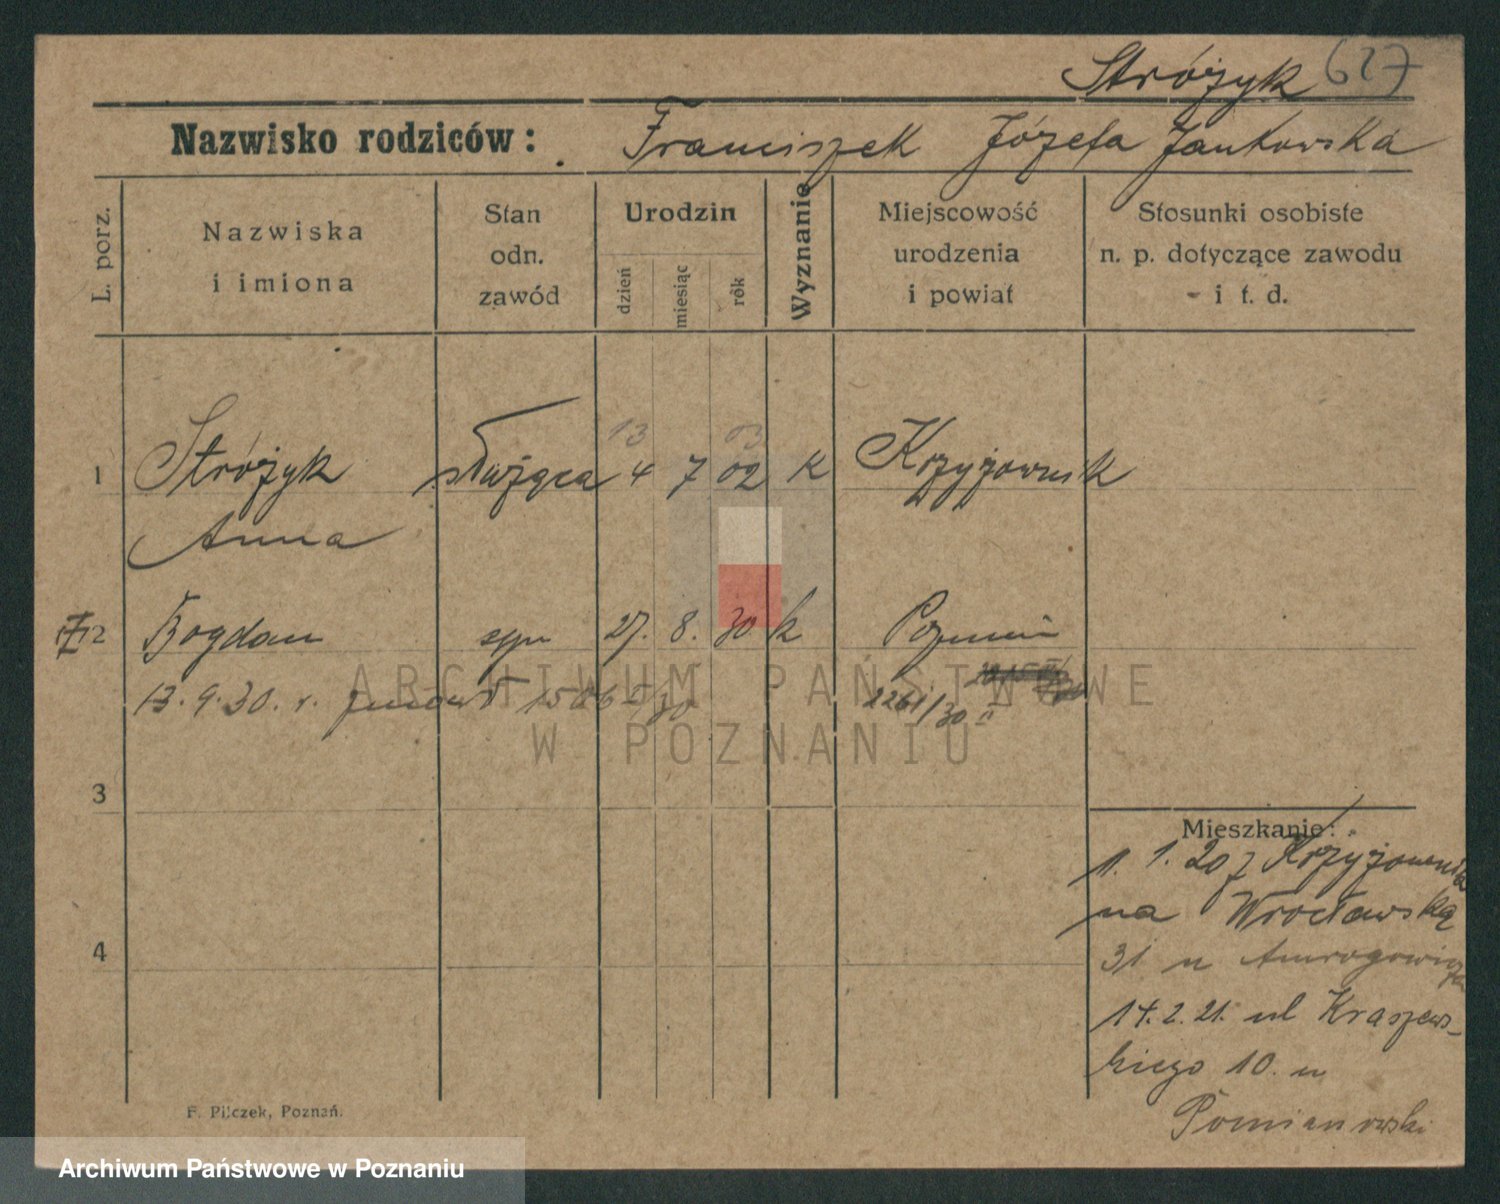 Stróżyk 627
Nazwisko rodziców: Franciszek Józefa Jankowska
L. porz.
Nazwiska i imiona
Stan odn. zawód
Urodzin
dzień
miesiąc
rok
Wyznanie
Miejscowość urodzenia i powiat
Stosunki osobiste n. p. dotyczące zawodu i t. d.
13 03
1 Stróżyk służąca 4 7 02 k Krzyżownik
Anna
2 Bogdan syn 27. 8. 30 k Poznań
13. 9. 30. r. 1506 II/30 2261/30 II
3
4
Mieszkanie:
1. 1. 20 z Krzyżownik
na Wrocławską
31 u
14. 2. 21. ul Kraszews-
kiego 10. u
Pomianowski
F. Pilczek, Poznań.
ARCHIWUM PAŃSTWOWE
W POZNANIU
Archiwum Państwowe w Poznaniu